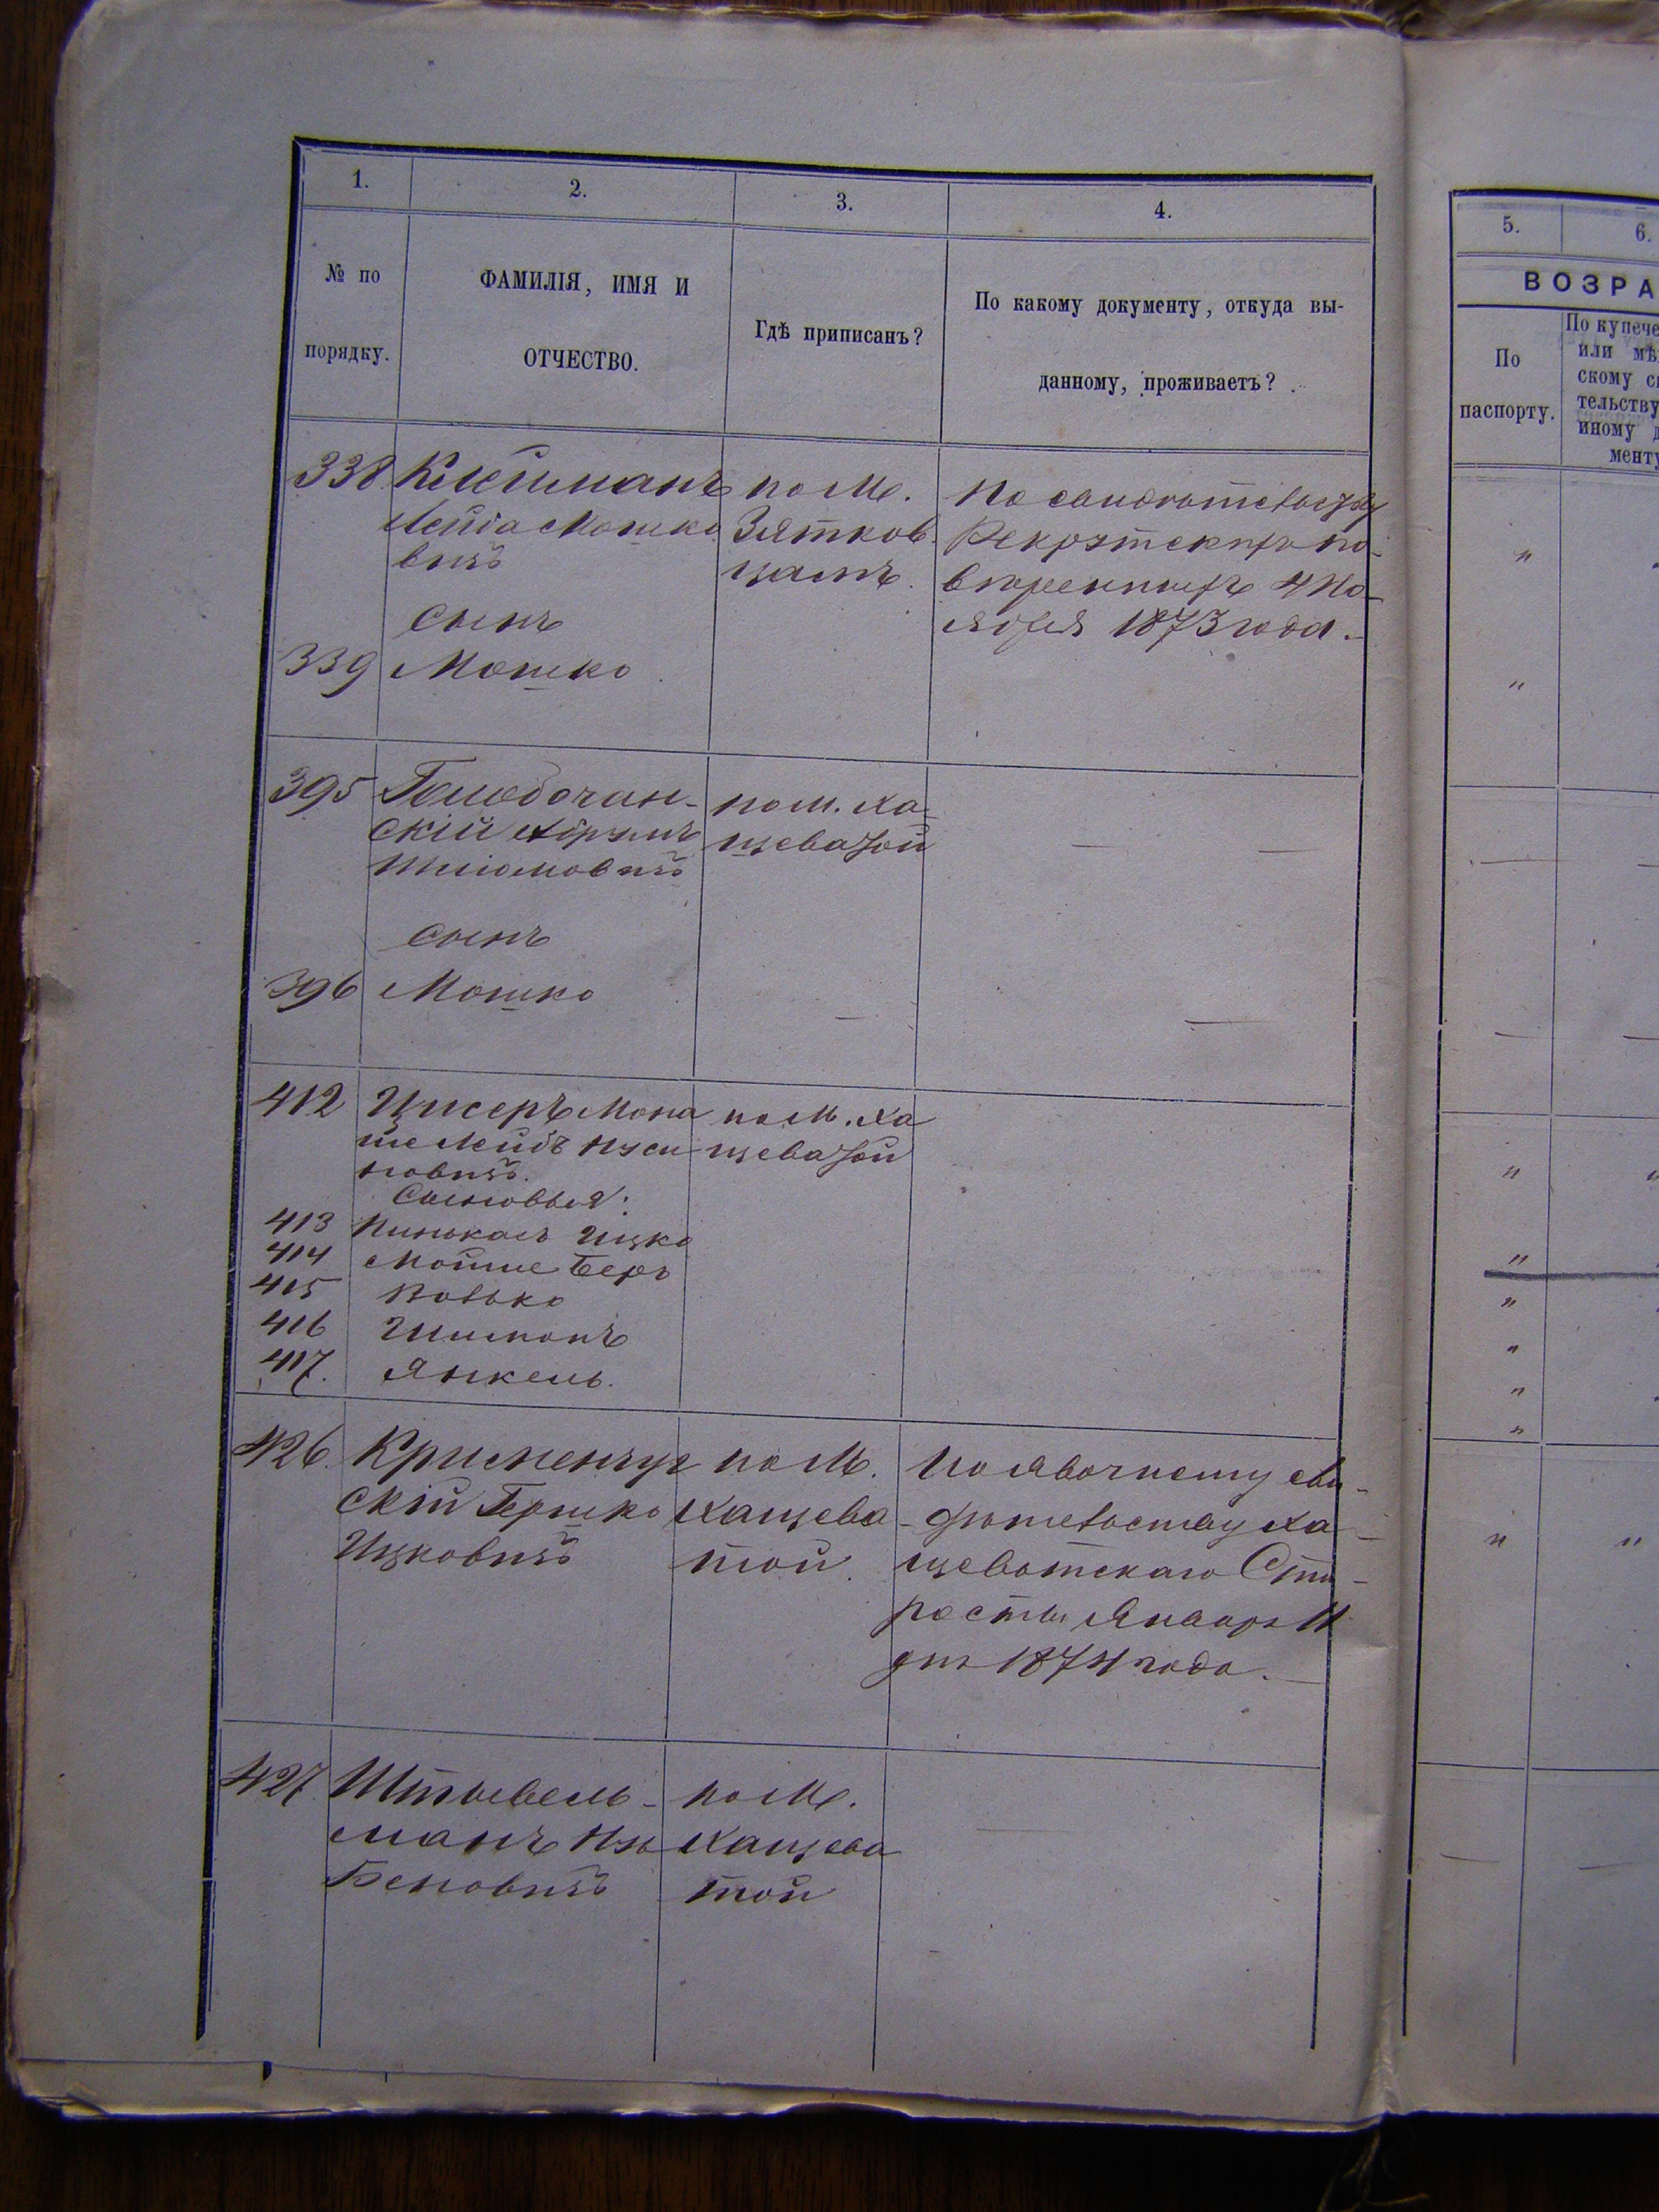 1.
2.
3.
4.
№ по
порядку.
ФАМИЛІЯ, ИМЯ И
ОТЧЕСТВО.
Гдѣ приписанъ?
По какому документу, откуда вы-
данному, проживаетъ?
338. Клейманъ
Лейба Мошко
вичъ
сынъ
339 Мошко
по М.
Зятков
цамъ.
По свидѣтельству
Рекрутскихъ по-
4 Но-
ября 1873 года.
395 Голобочан-
скій
Шліомовичъ
по м. Ха-
щеватой
сынъ
396 Мошко
412 Цисеръ Мона
ше Лейбъ Нуси
новичъ.
Сыновья:
413 Пинькасъ Ицко
414 Мойше Беръ
415 Волько
416 Шимонъ
417. Янкель.
по М. Ха
щеватой
426. Крименчуг
скій Гершко
Ицковичъ
по М.
Хащева
той.
По явочному сви-
дѣтельству Ха-
щеватскаго Ста-
росты Января 11
дня 1874 года.
427. Штывель-
манъ
Беновичъ
по М.
Хащева
той
5.
6.
ВОЗРА
По
паспорту.
По купече
или мѣ
скому с
тельству
иному д
менту